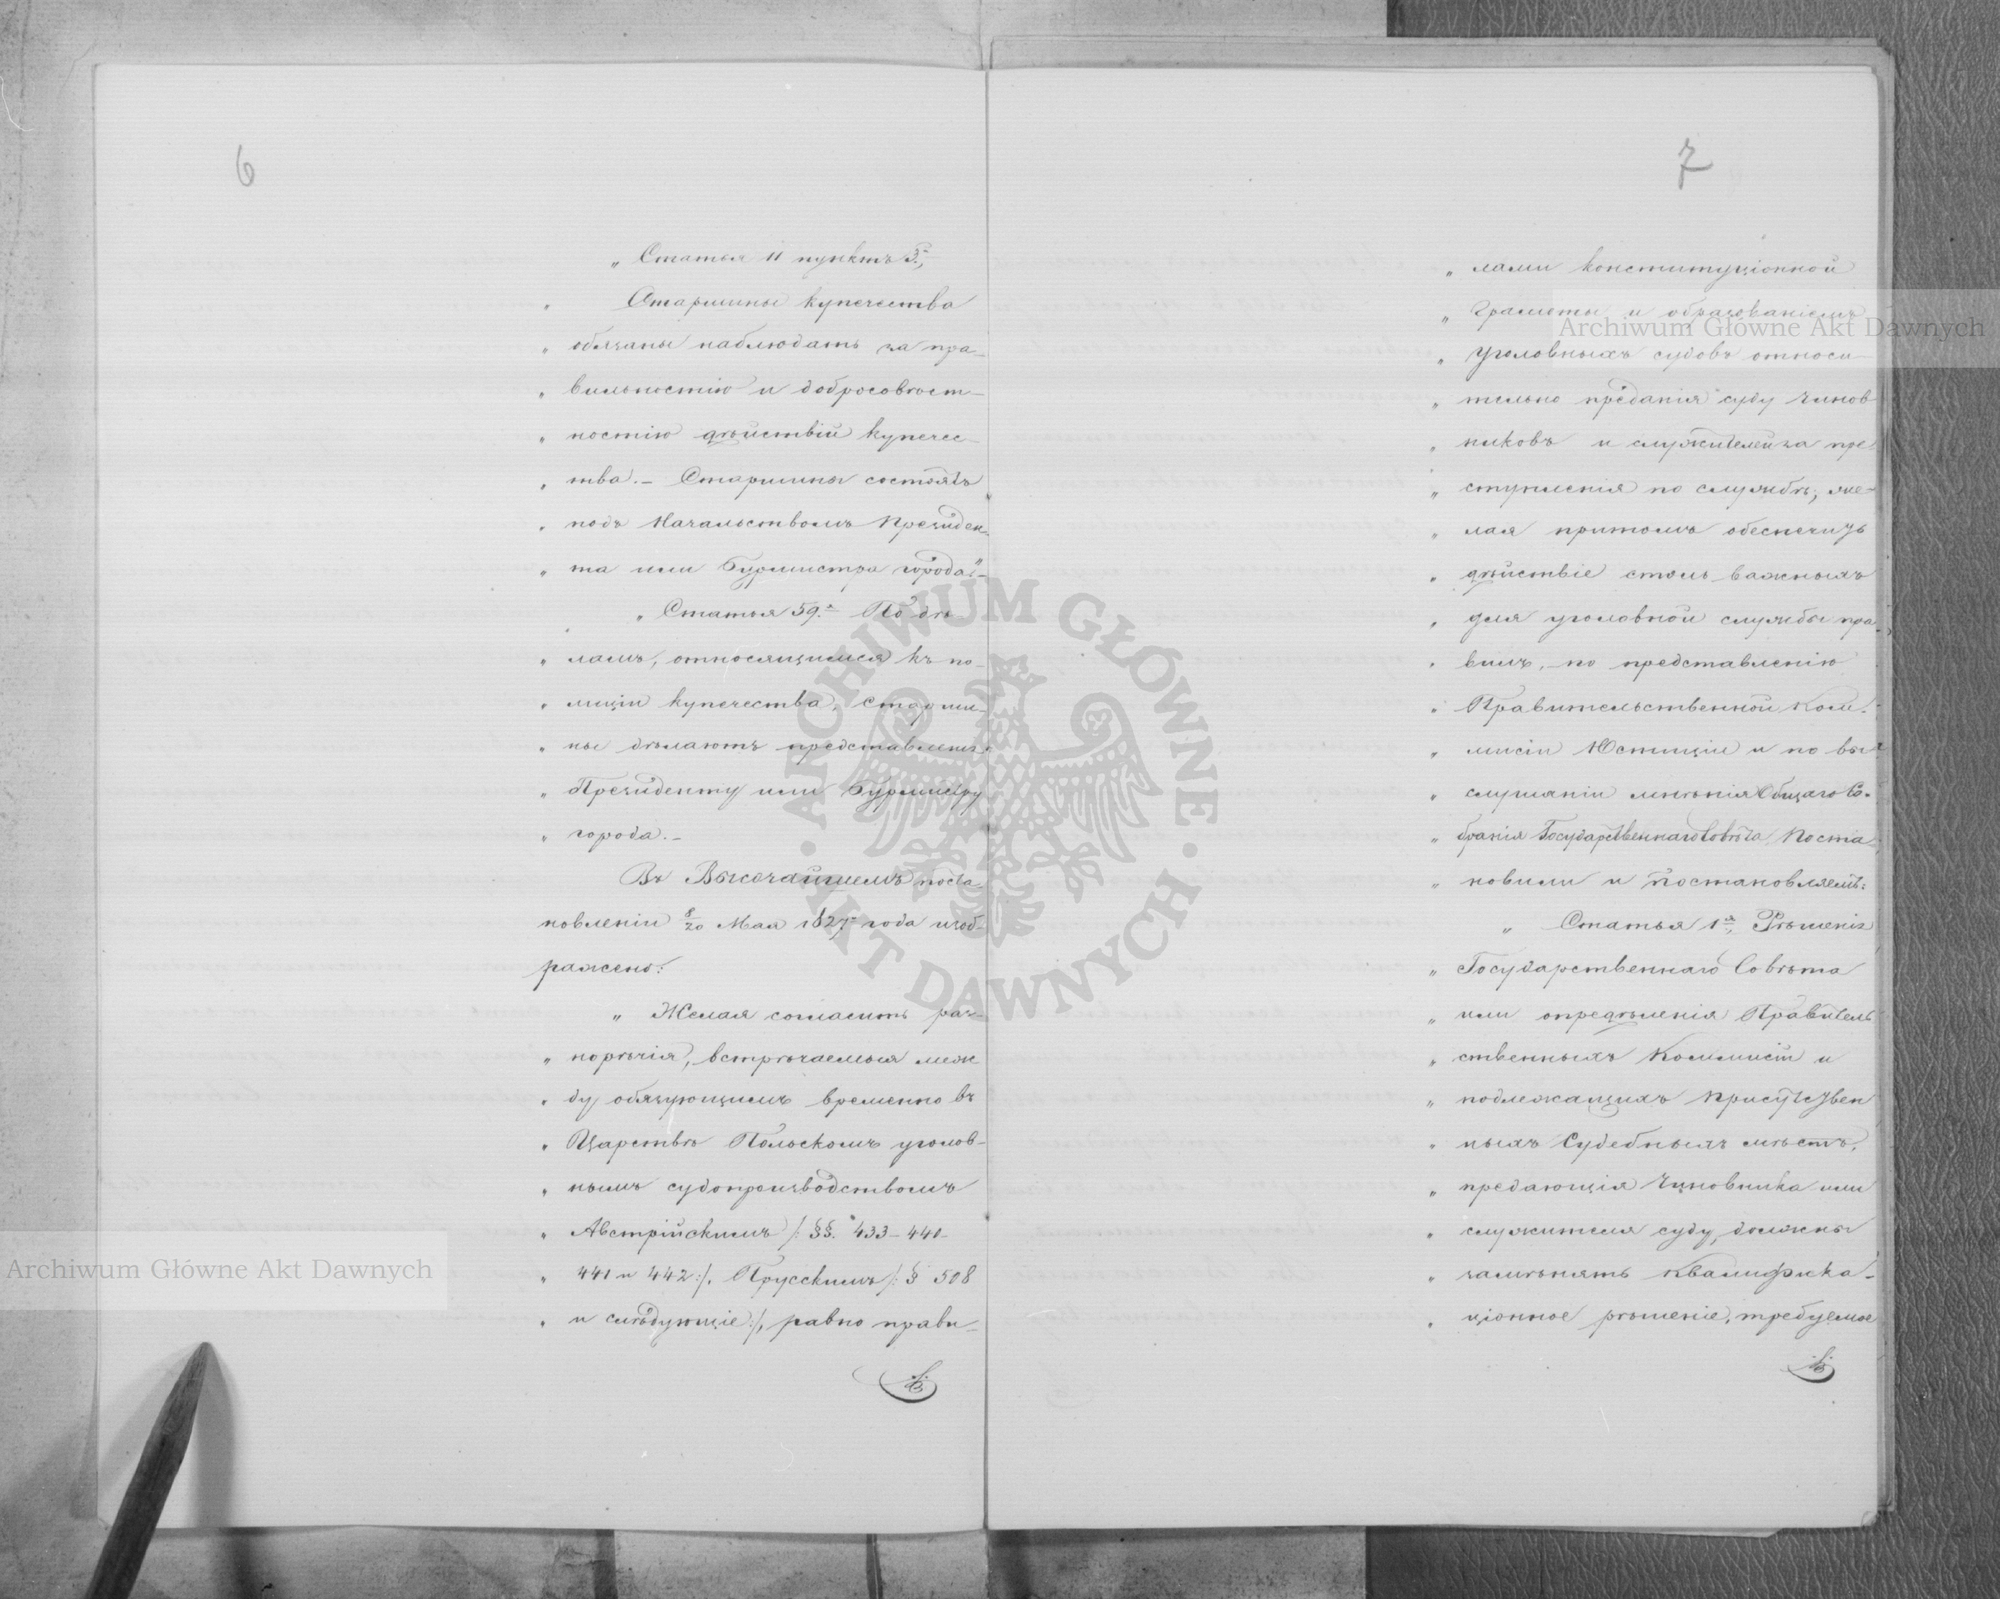 6
„ Статья 11 пунктъ 5.,
„ Старшины купечества
„ обязаны наблюдать за пра-
„ вильностію и добросовѣст-
„ ностію дѣйствій купечес-
„ тва. – Старшины состоятъ
„ подъ Начальствомъ Президен-
„ та или Бурмистра города."–
„ Статья 59.ª По дѣ-
„ ламъ, относящимся къ по-
„ лиціи купечества, старши-
„ ны дѣлаютъ представленія
„ Президенту или Бурмистру
„ города. –
Въ Высочайшемъ поста-
новленіи 8/20 Мая 1827 года изоб-
ражено:
„ Желая согласить раз-
„ норѣчія, встрѣчаемыя меж
„ ду обязующимъ временно въ
„ Царствѣ Польскомъ уголов-
„ нымъ судопроизводствомъ
„ Австрійскимъ /: §§. 433 – 440 –
„ 441 и 442 :/, Прусскимъ /: § 508
„ и слѣдующіе :/, равно прави-
7
„ лами конституціонной
„ Грамоты и образованіемъ
„ уголовныхъ судовъ относи-
„ тельно преданія суду чинов
„ никовъ и служителей за пре-
„ ступленія по службѣ; же-
„ лая притомъ обеспечить
„ дѣйствіе столь важныхъ
„ для уголовной службы пра-
„ вилъ, – по представленію
„ Правительственной Ком-
„ мисіи Юстиціи и по вы-
„ слушаніи мнѣнія Общаго Со-
„ бранія Государственнаго Совѣта, Поста-
„ новили и постановляемъ:
„ Статья 1я, Рѣшенія
„ Государственнаго Совѣта
„ или опредѣленія Правитель
„ ственныхъ Коммисій и
„ подлежащихъ Присутствен
„ ныхъ Судебныхъ мѣстъ,
„ предающія Чиновника или
„ служителя суду, должны
„ замѣнять квалифика-
„ ціонное рѣшеніе, требуемое
Archiwum Główne Akt Dawnych
Archiwum Główne Akt Dawnych
ARCHIWUM GŁÓWNE · AKT DAWNYCH ·